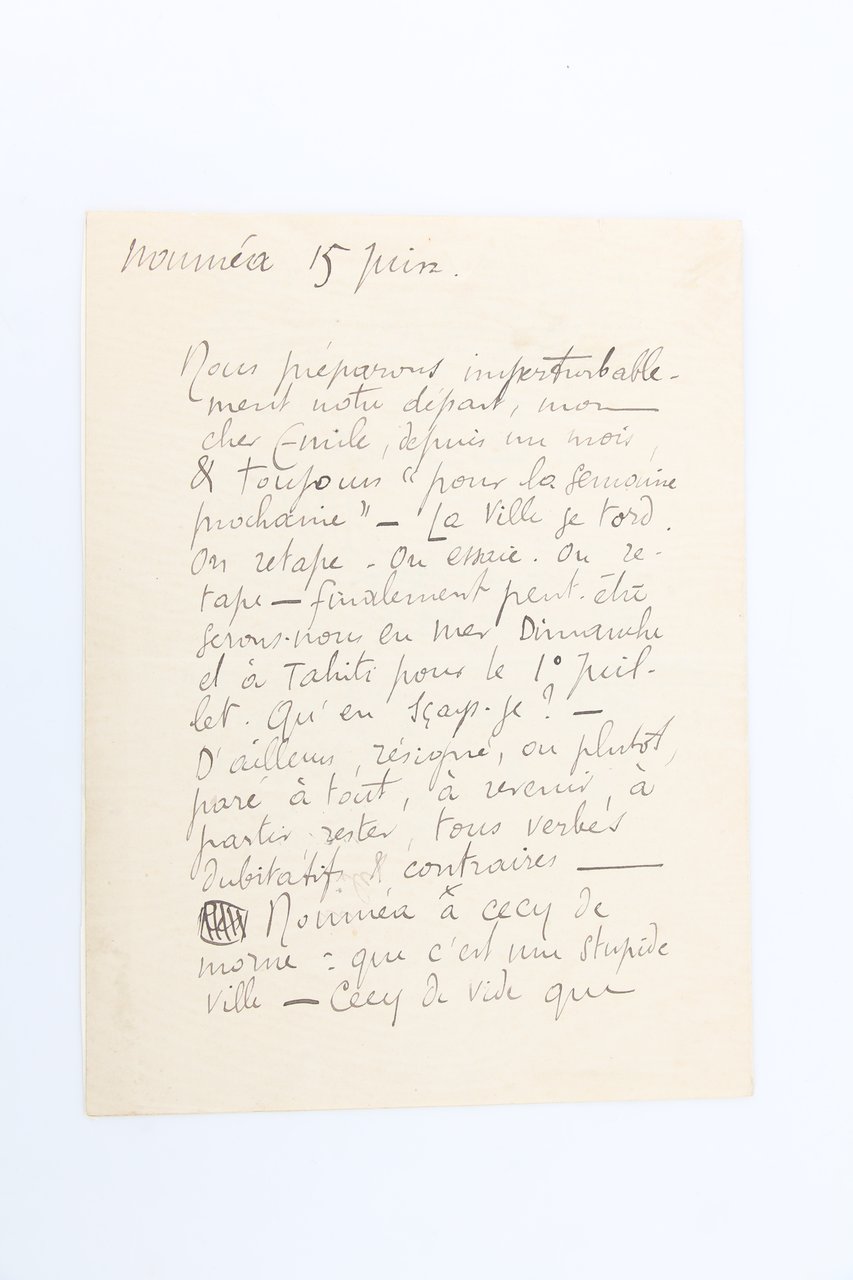 Nouméa 15 Juin.
Nous préparons imperturbable-
ment notre départ, mon
cher Emile, depuis un mois,
& toujours "pour la semaine
prochaine" — La Ville se tord.
On retape - On essaie. On re-
tape — finalement peut-être
serons-nous en mer Dimanche
et à Tahiti pour le 1° Juil-
let. Qu'en sçays-je ? —
D'ailleurs, résigné, ou plutôt,
paré à tout, à revenir, à
partir, rester, tous verbes
dubitatifs & contraires —
Nouméa a cecy de
morne : que c'est une stupide
ville — Cecy de vide que